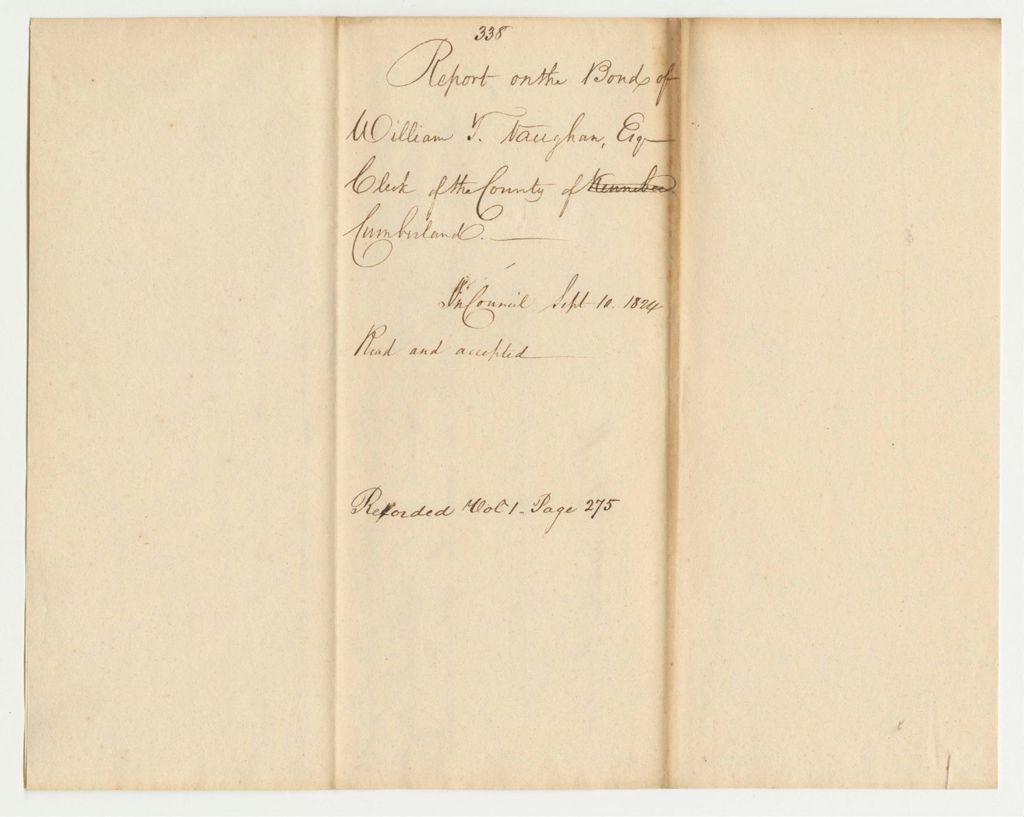 338
Report on the Bond of
William T. Vaughan, Esq
Clerk of the County of Kennebec
Cumberland.
In Council Sept 10. 1824
Read and accepted
Recorded Vol 1 - Page 275